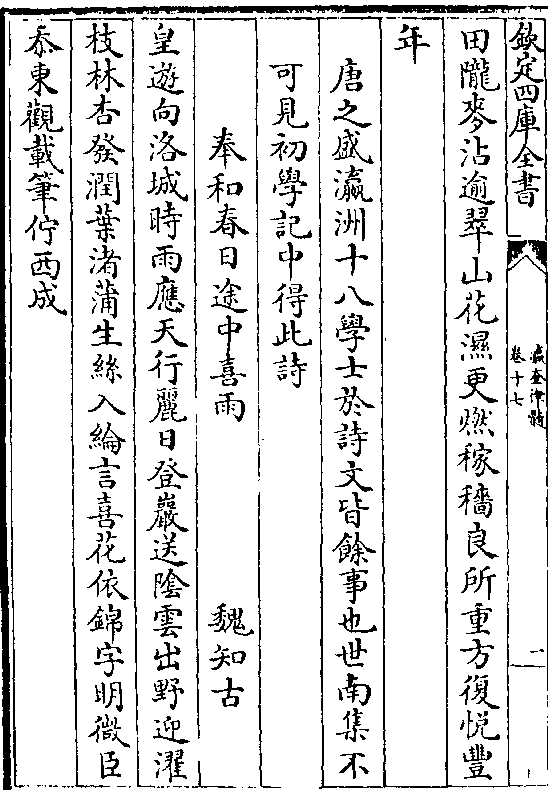 欽定四庫全書
瀛奎律髓
卷十七
一
田隴麥沾逾翠山花濕更燃稼穡良所重方復悦豐
年
唐之盛瀛洲十八學士於詩文皆餘事也世南集不
可見初學記中得此詩
奉和春日途中喜雨 魏知古
皇遊向洛城時雨應天行麗日登巖送陰雲出野迎濯
枝林杏發潤葉渚蒲生絲入綸言喜花依錦字明微臣
忝東觀載筆佇西成